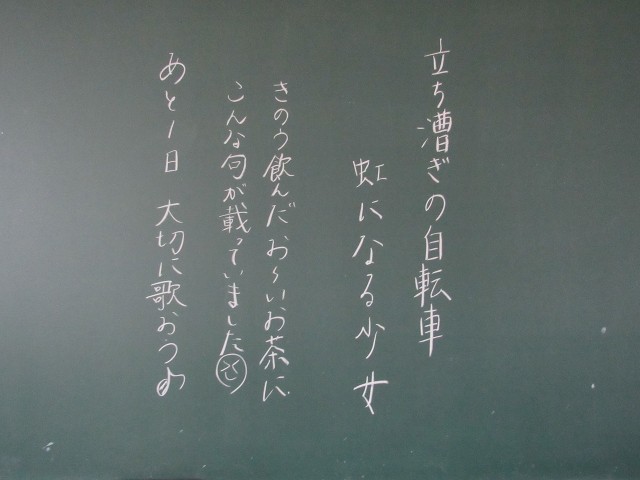 立ち漕ぎの自転車
虹になる少女
きのう飲んだ、お~いお茶に
こんな句が載っていました
あと1日 大切に歌おう